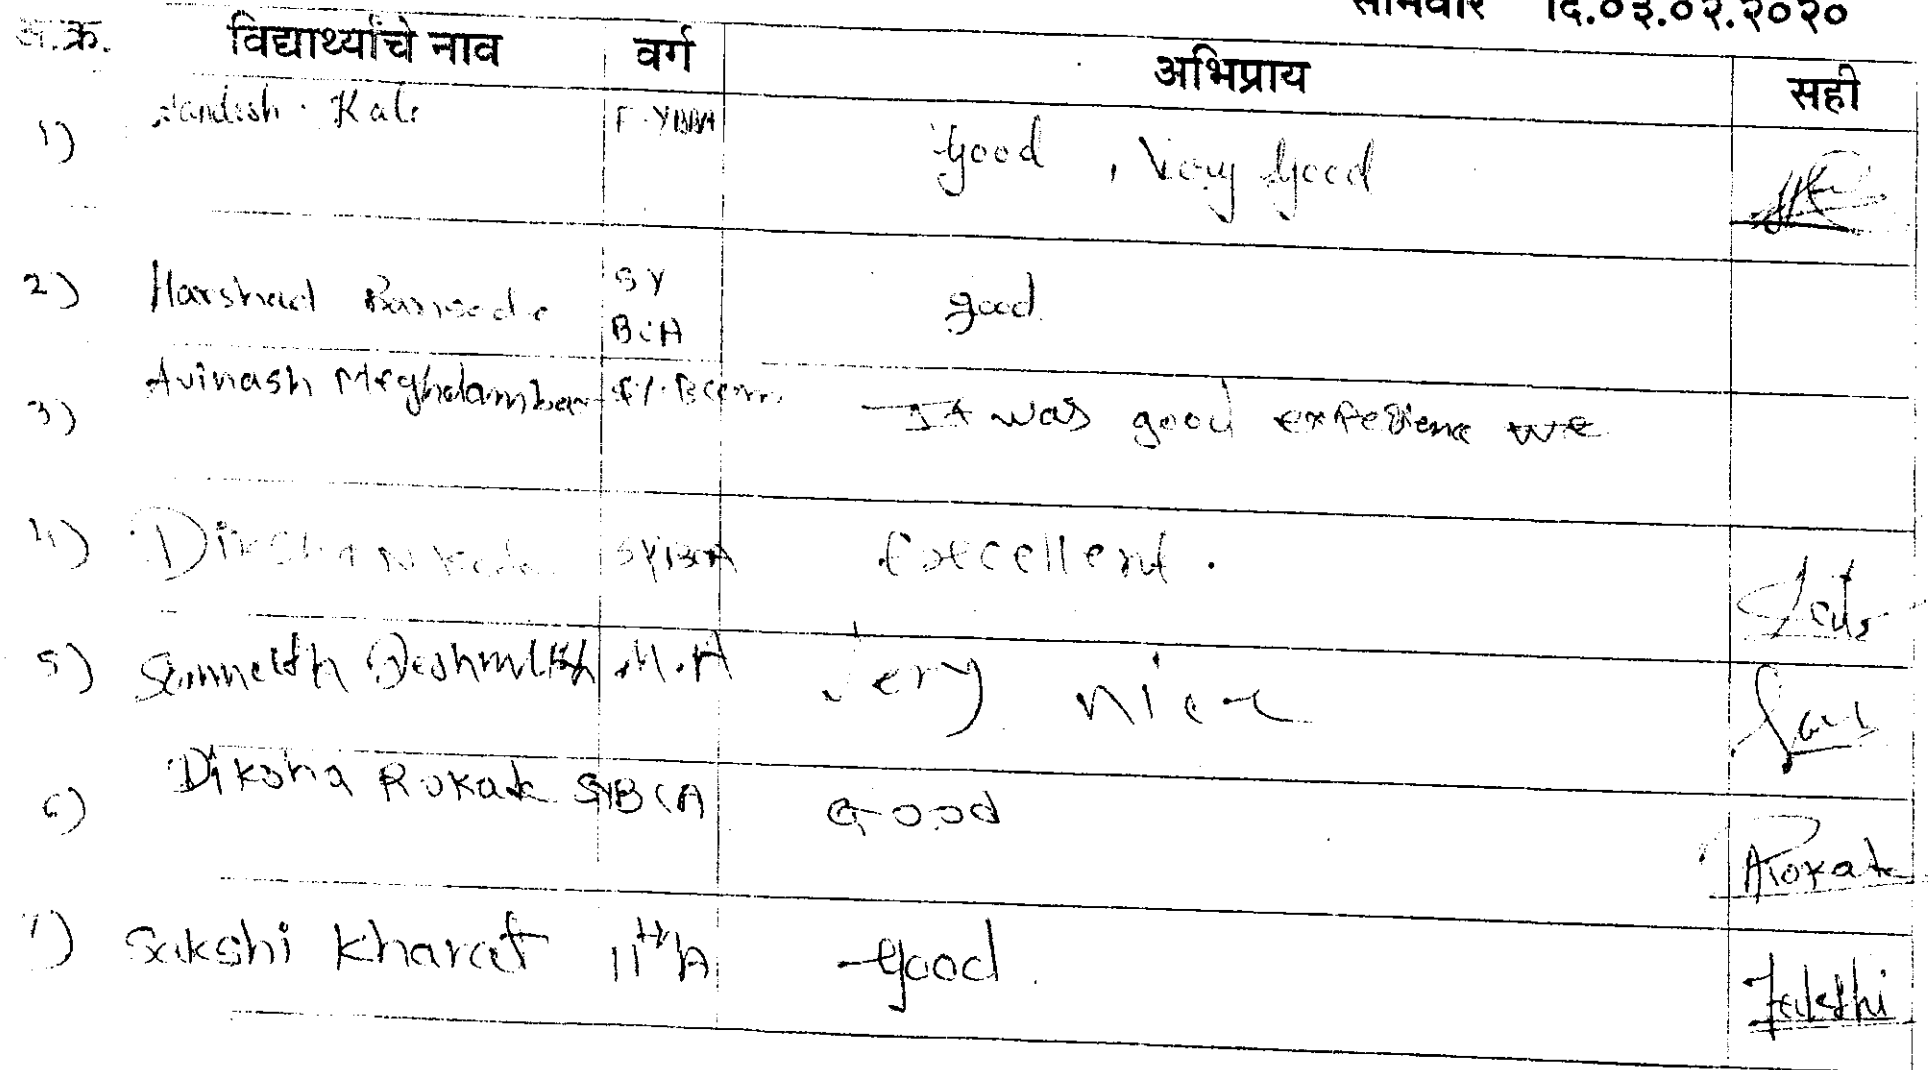 सोमवार दि.०३.०२.२०२०
अ.क्र. विद्यार्थ्यांचे नाव वर्ग अभिप्राय सही
1) Kale F.YBBA Good , Very Good
2) Harshad Bansode SY BCA good
3) Avinash Meghdambar It was good expeRience we
4) SYBCA Excellent.
5) Deshmukh M.A Very nice
6) Diksha Rokade SYBCA Good Rokade
7) Sakshi Kharat 11th A Good. Sakshi